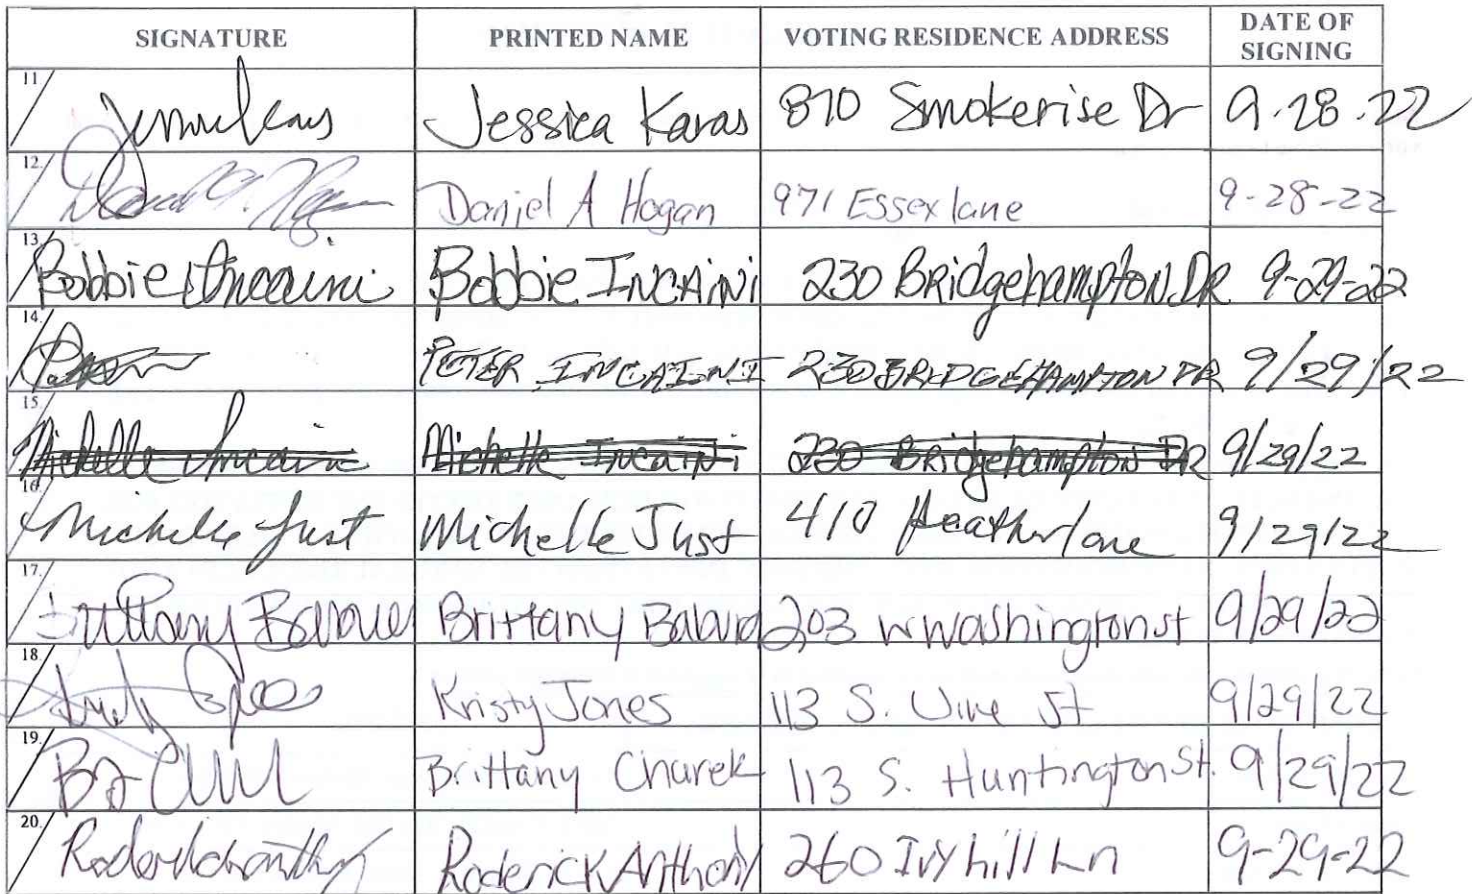 SIGNATURE PRINTED NAME VOTING RESIDENCE ADDRESS DATE OF SIGNING
11 Jessica Karas 870 Smokerise Dr 9.28.22
12. Daniel A Hogan 971 Essex lane 9-28-22
13. Bobbie Incaini Bobbie INCAiNi 230 BRidgehampton DR 9-29-22
14. PETER INCAINI 230 BRIDGEHAMPTON DR 9/29/22
15. Michelle Incaini Michelle Incaini 230 BRidgehampton DR 9/29/22
16. Michelle Just Michelle Just 410 Heather lane 9/29/22
17. Brittany Brittany 203 w washington st 9/29/22
18. Kristy Jones 113 S. Vine St 9/29/22
19. Brittany Churek 113 S. Huntington St. 9/29/22
20. Roderick Anthony 260 Ivy hill Ln 9-29-22